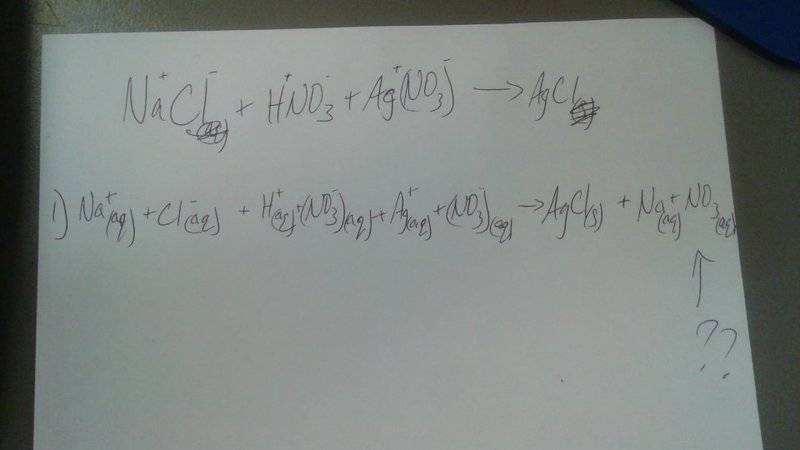 Na⁺Cl⁻ + H⁺NO₃⁻ + Ag⁺(NO₃⁻) → AgCl
1) Na⁺(aq) + Cl⁻(aq) + H⁺(aq) + (NO₃⁻)(aq) + Ag⁺(aq) + (NO₃⁻)(aq) → AgCl(s) + Na⁺(aq) NO₃⁻(aq)
↑
??